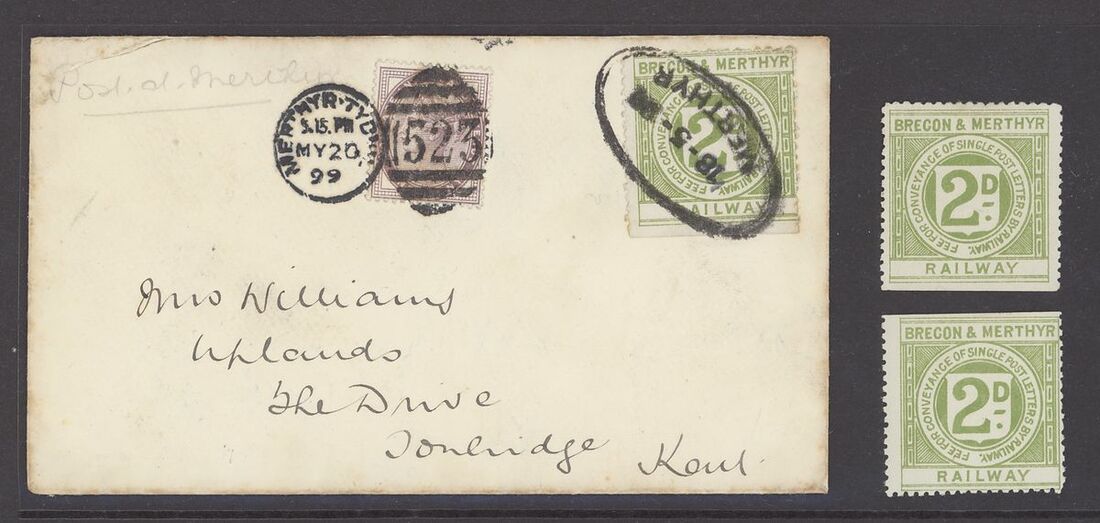 Post. at. Merthyr
MERTHYR-TYDFIL
5.15.PM
MY20
99
523
BRECON & MERTHYR
2
FEE FOR CONVEYANCE OF SINGLE POST LETTERS BY RAILWAY.
RAILWAY
18-5-
MERTHYR
Mrs Williams
Uplands
The Drive
Tonbridge Kent
BRECON & MERTHYR
2D
FEE FOR CONVEYANCE OF SINGLE POST LETTERS BY RAILWAY.
RAILWAY
BRECON & MERTHYR
2D
FEE FOR CONVEYANCE OF SINGLE POST LETTERS BY RAILWAY.
RAILWAY